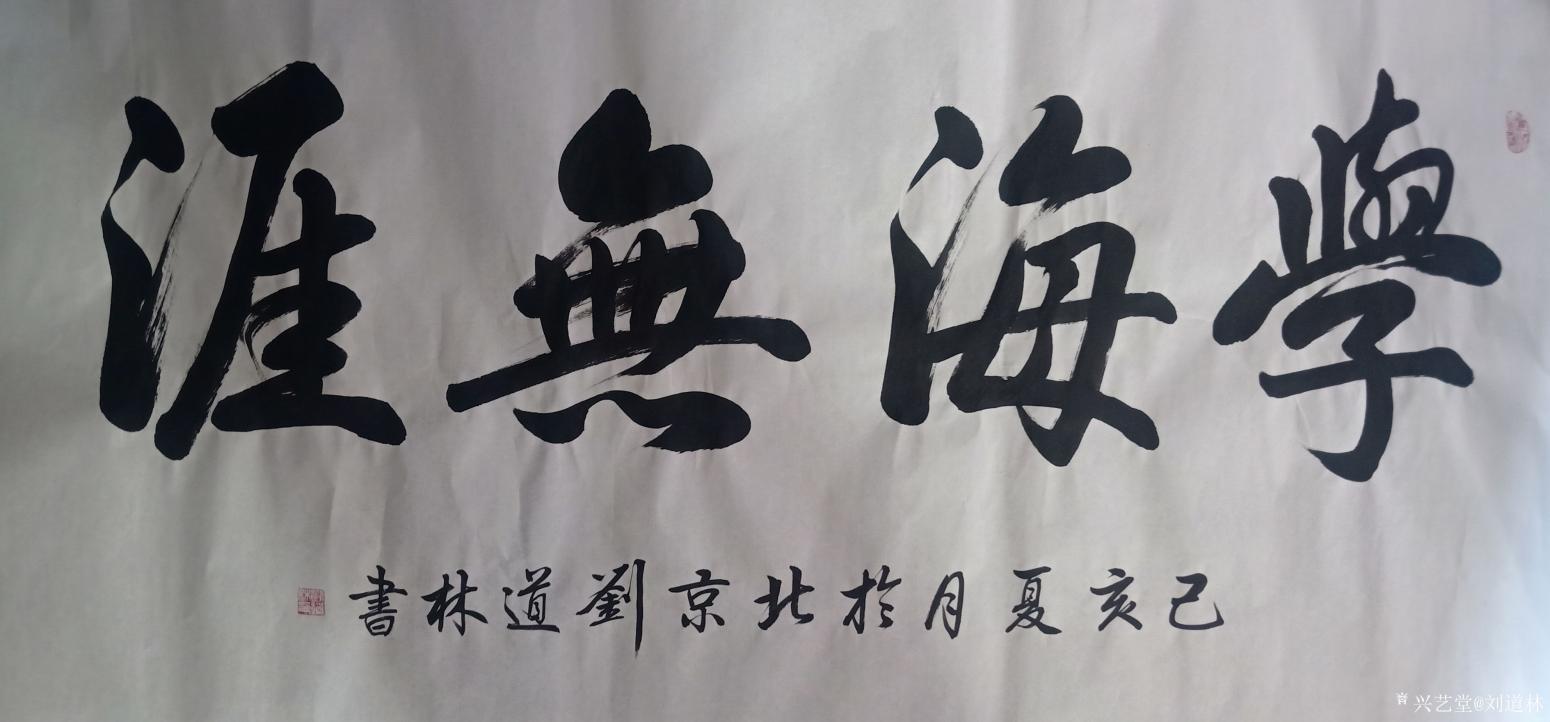 學海無涯
己亥夏月於北京劉道林書
兴艺堂@刘道林